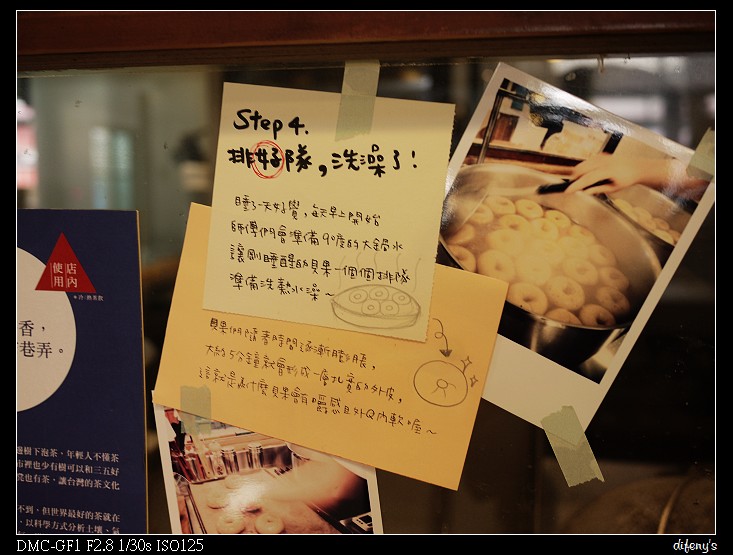 Step 4.
排好隊，洗澡了！
睡了一天好覺，每天早上開始
師傅們會準備90度的大鍋水
讓剛睡醒的貝果一個個排隊
準備洗熱水澡～
貝果們隨著時間逐漸膨脹，
大約5分鐘就會形成一層扎實的外皮，
這就是為什麼貝果會有嚼感且外Q內軟喔～
店內
使用
香，
巷弄。
樹下泡茶，年輕人不懂茶
市裡也少有樹可以和三五好
也有茶，讓台灣的茶文化
不到，但世界最好的茶就在
，以科學方式分析土壤、氣
DMC-GF1 F2.8 1/30s ISO125
difeny's